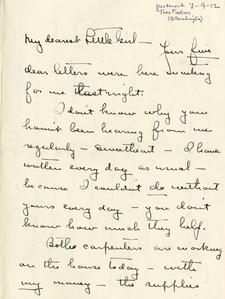 postmark 7-9-12
Tres Piedras
(to Burlington)
My dearest Little Girl -
Your five
dear letters were here waiting
for me last night.
I don't know why you
haven't been hearing from me
regularly - sweetheart - I have
written every day as usual -
because I couldn't do without
yours every day - you don't
know how much they help.
Both carpenters are working
on the house today - with
my money - the supplies